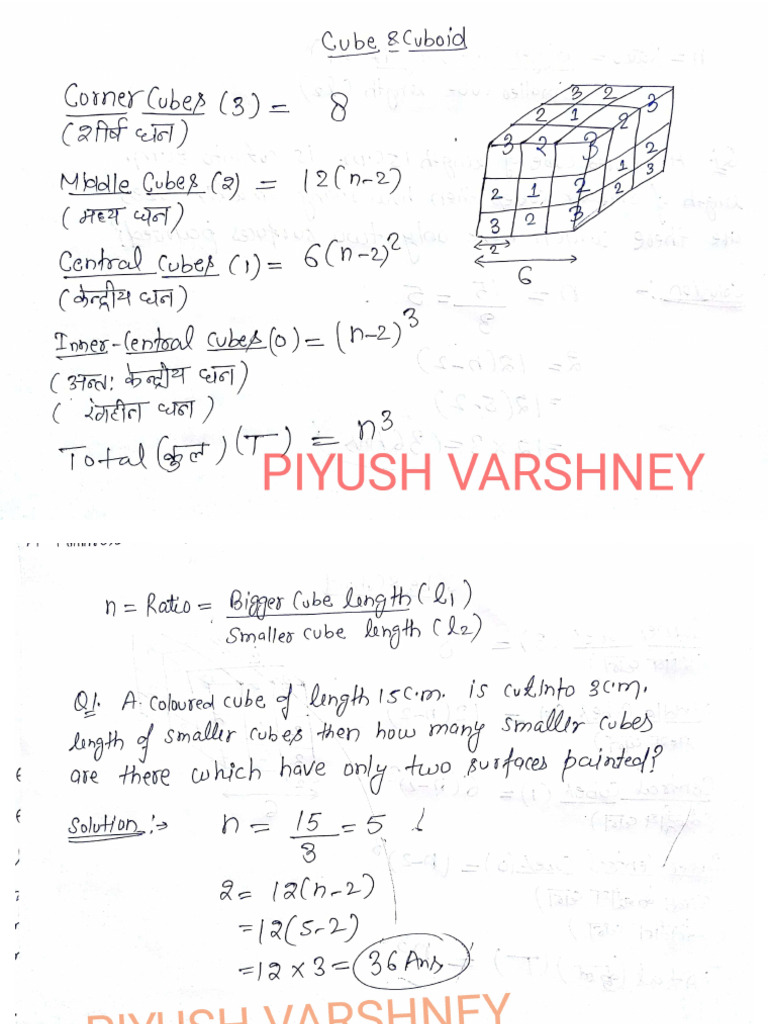 Cube & Cuboid
Corner Cubes (3) = 8
(शीर्ष घन)
Middle Cubes (2) = 12(n-2)
(मध्य घन)
Central Cubes (1) = 6(n-2)²
(केन्द्रीय घन)
Inner-Central Cubes (0) = (n-2)³
(अन्तः केन्द्रीय घन)
(रंगहीन घन)
Total (कुल) (T) = n³
3 2
2 1 2 3
3 2 3
1 2
2 1 2 2 3
3 2 3
2
6
PIYUSH VARSHNEY
n = Ratio = Bigger Cube length (l₁)
Smaller cube length (l₂)
Q1. A coloured cube of length 15 C.m. is cut into 3 C.m.
length of smaller cubes then how many smaller cubes
are there which have only two surfaces painted?
Solution :→ n = 15 = 5
3
2 = 12(n-2)
= 12(5-2)
= 12 × 3 = 36 Ans
PIYUSH VARSHNEY